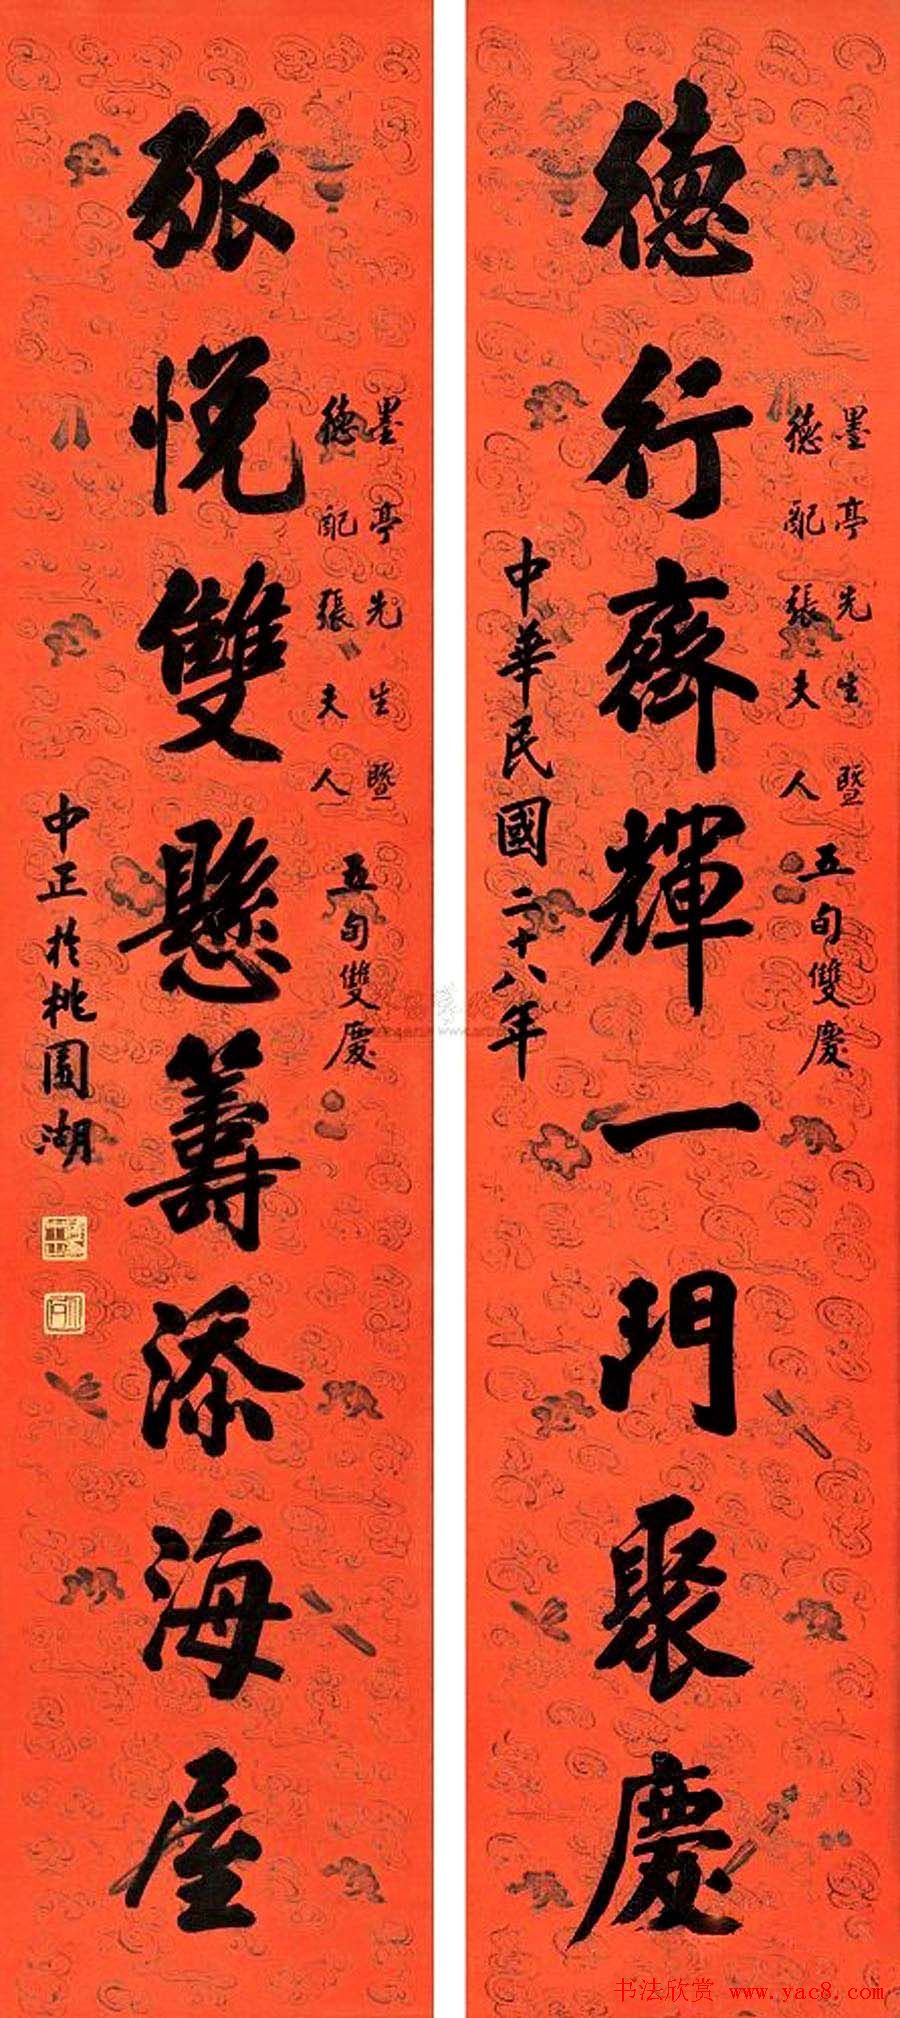 墨亭先生暨
德配張夫人
五旬雙慶
德行齊輝一門聚慶
中華民國二十八年
墨亭先生暨
德配張夫人
五旬雙慶
弧帨雙懸籌添海屋
中正於桃園湖
书法欣赏 www.yac8.com